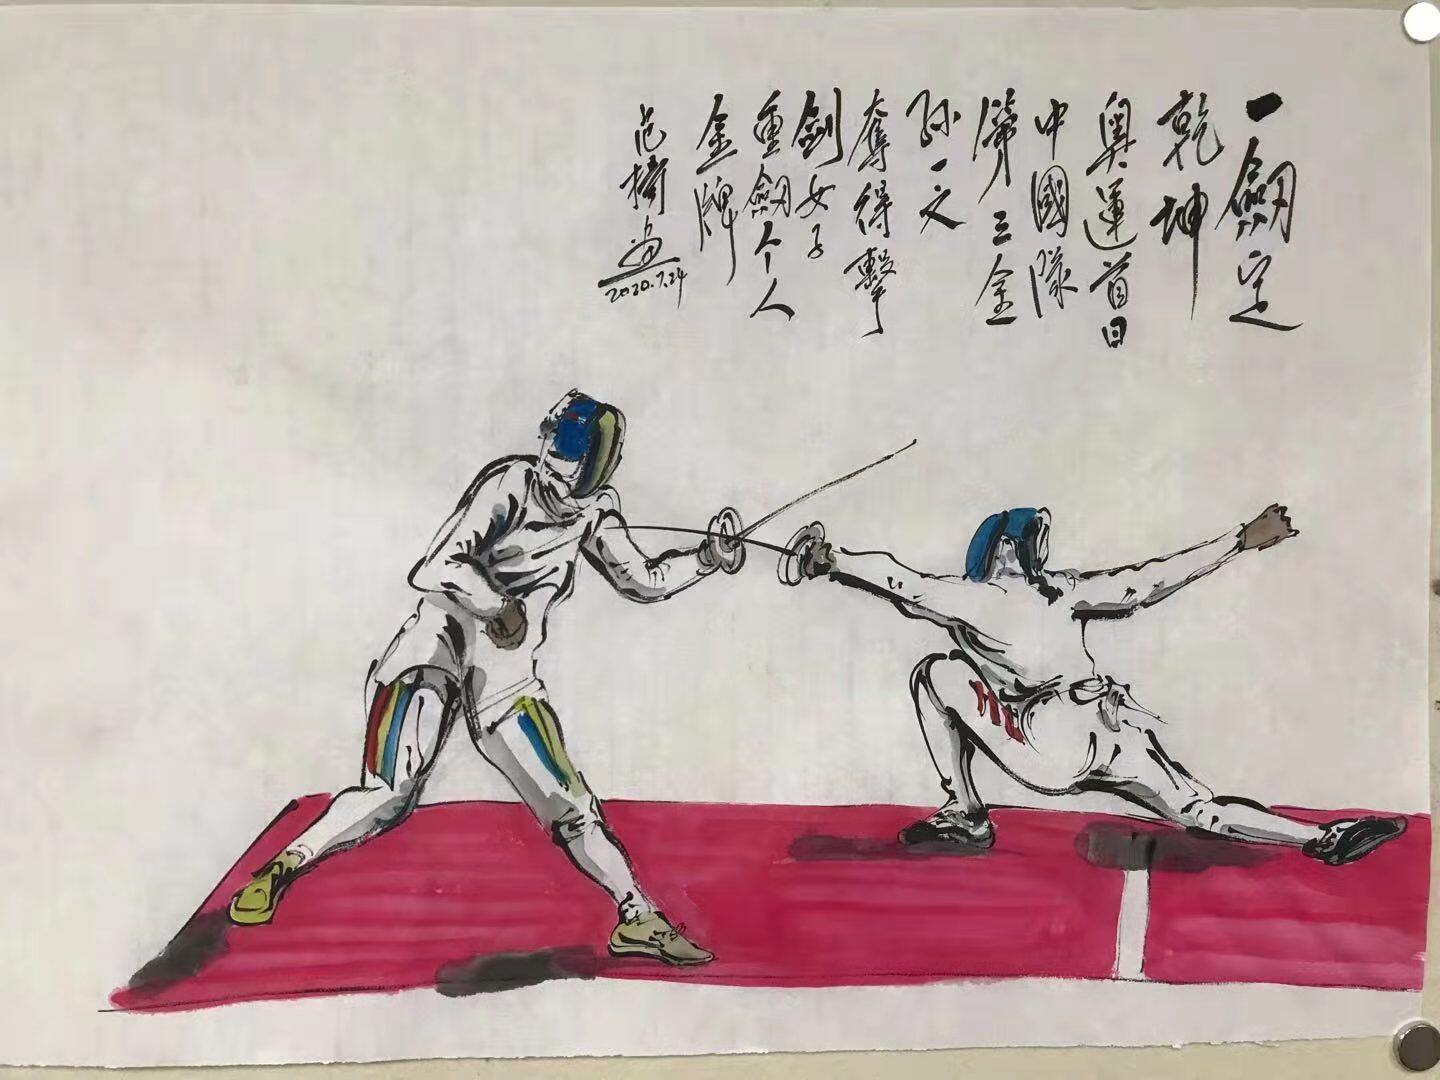 一劍定
乾坤
奧運首日
中國隊
第三金
孫一文
奪得擊
劍女子
重劍个人
金牌
范楠画
2020.7.24